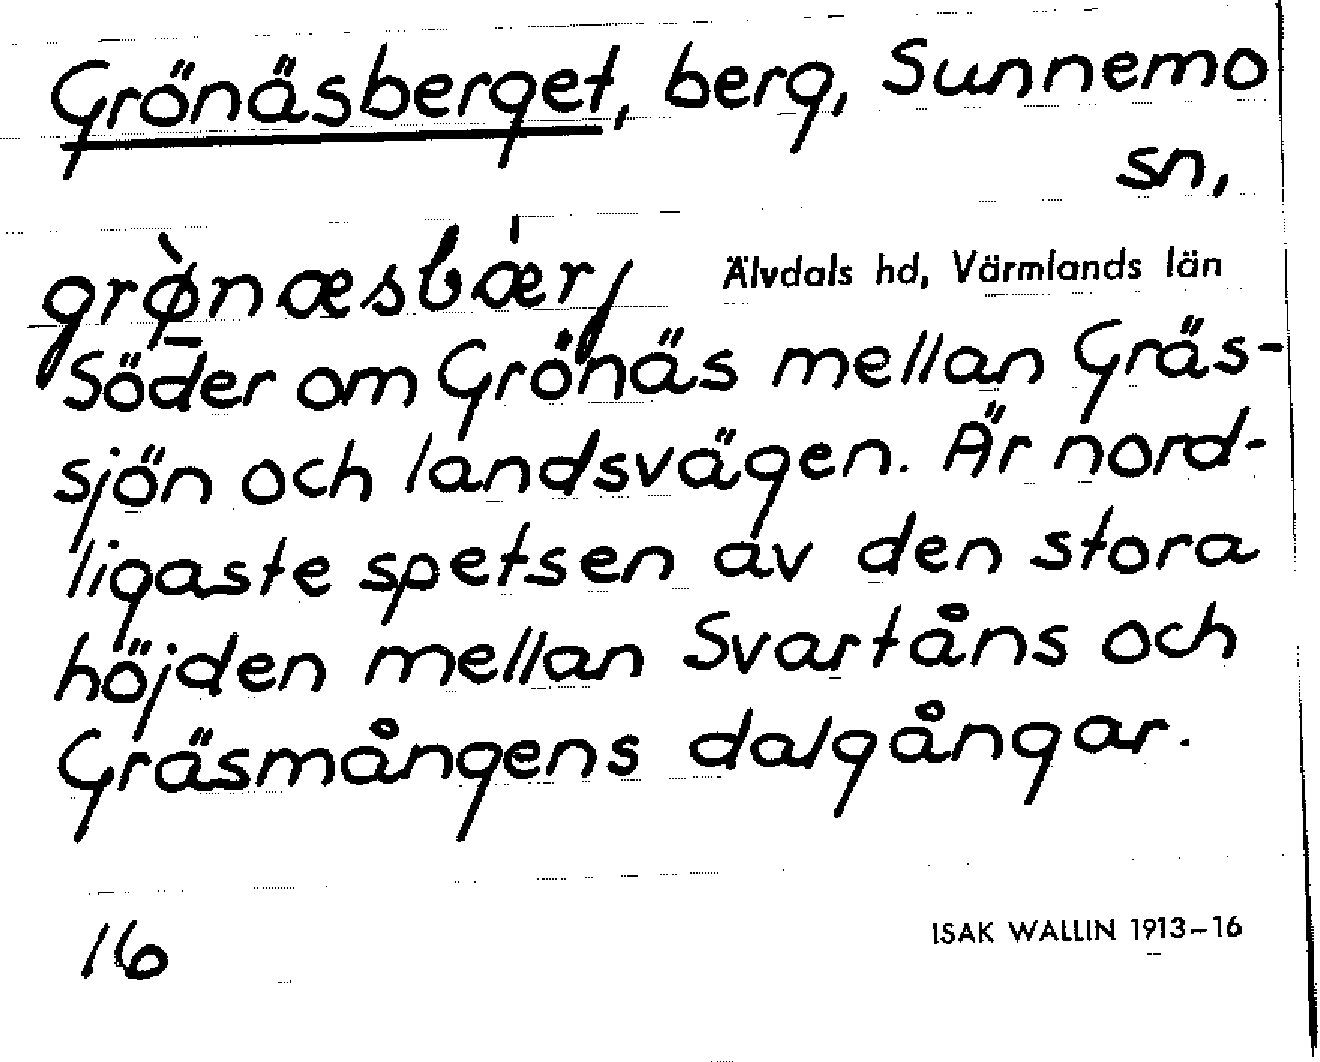 Grönäsberget, berg, Sunnemo
sn,
grø̀næsbær̍j
Älvdals hd, Värmlands län
Söder om Grönäs mellan Gräs-
sjön och landsvägen. Är nord-
ligaste spetsen av den stora
höjden mellan Svartåns och
Gräsmångens dalgångar.
16
ISAK WALLIN 1913-16